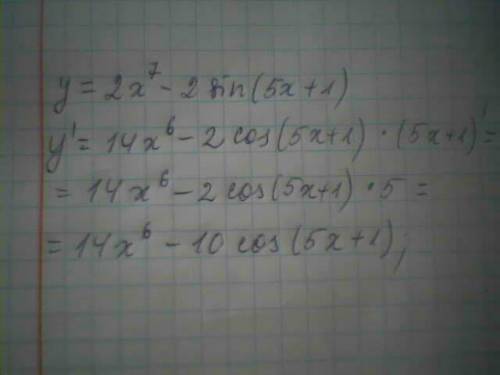 y = 2x⁷ - 2 sin(5x+1)
y' = 14x⁶ - 2 cos(5x+1) · (5x+1)' =
= 14x⁶ - 2 cos(5x+1) · 5 =
= 14x⁶ - 10 cos(5x+1);